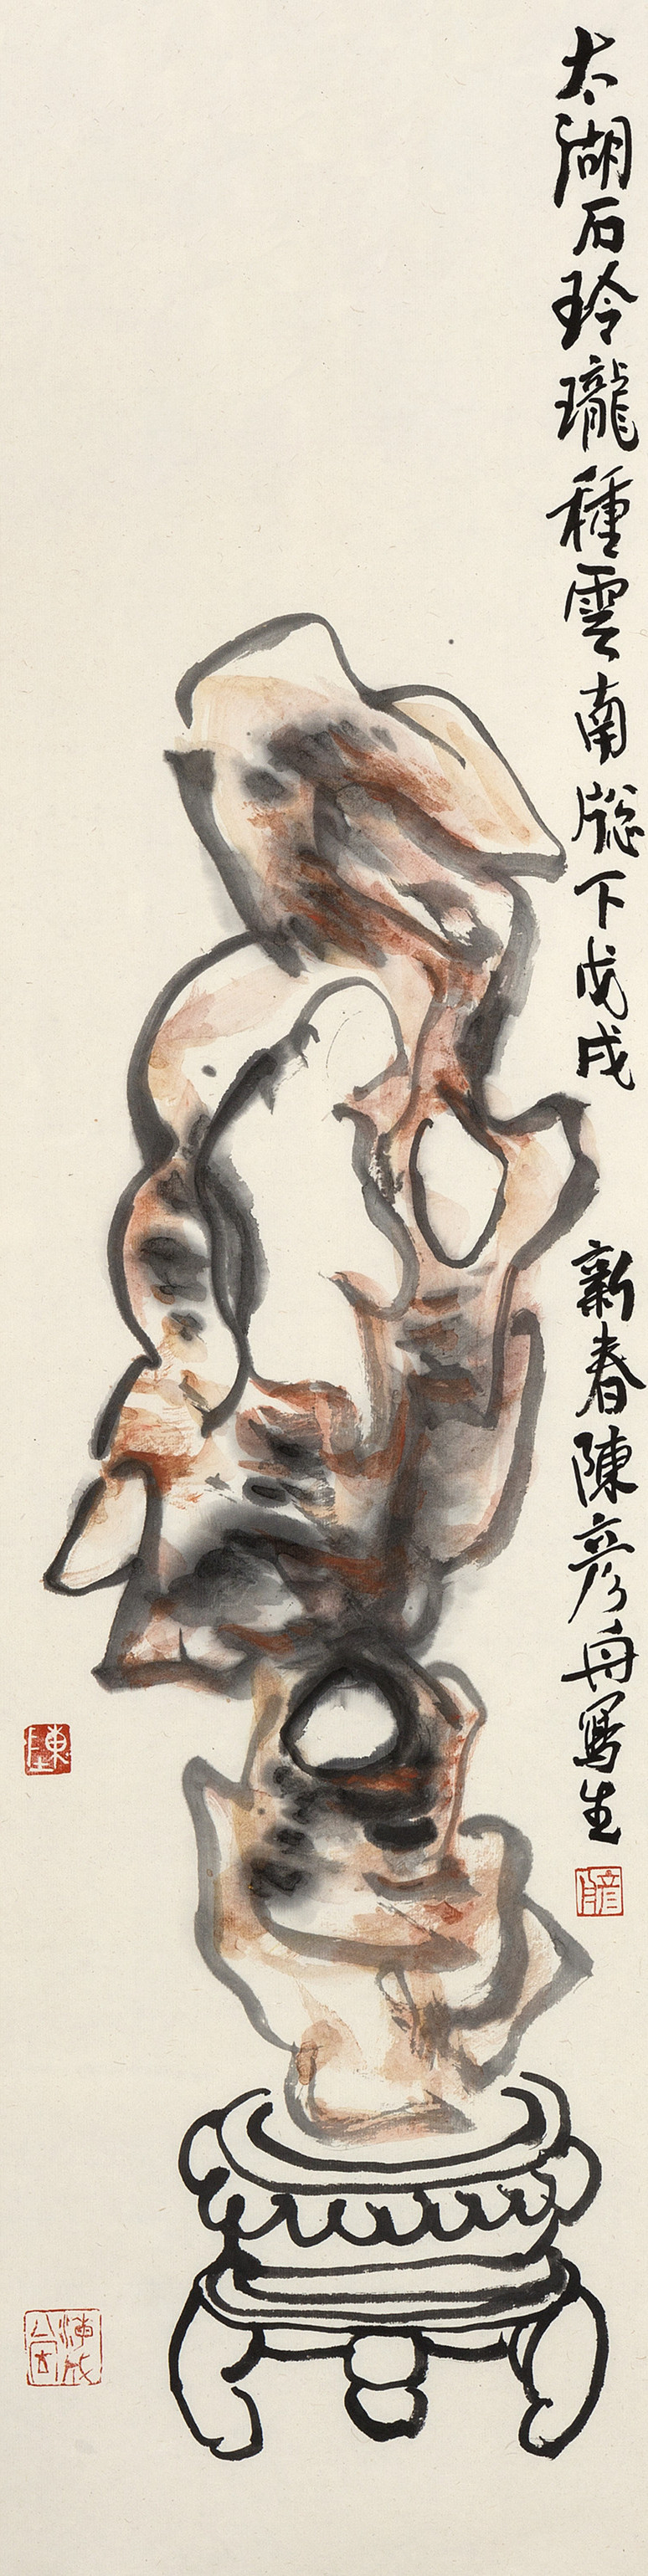 太湖石玲瓏種雲南牕下戊戌
新春陳彥舟寫生
陳